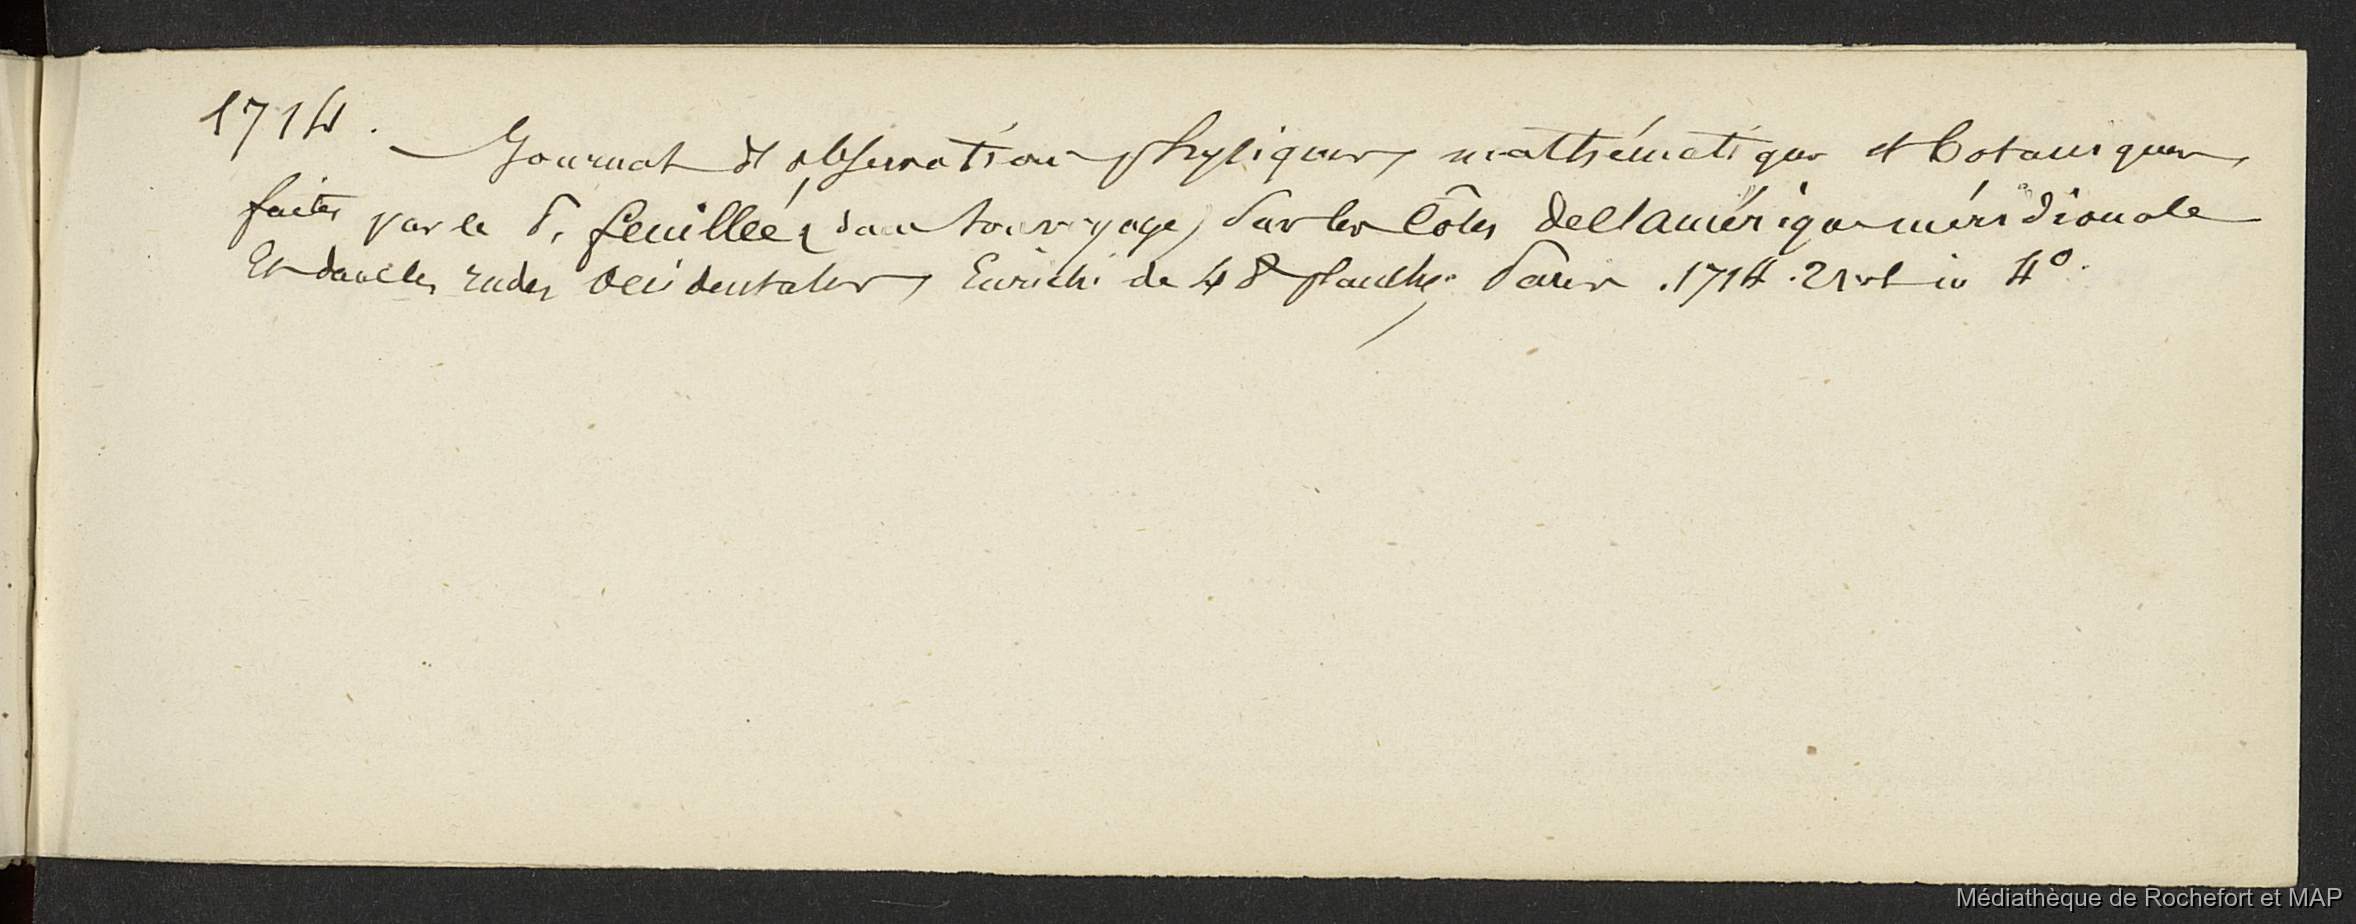 1714.
Journal d'observations physiques, mathématiques et botaniques,
faites par le P. feuillée, dans son voyage, sur les Côtes de l'amérique méridionale
Et dans les indes Occidentales, Enrichi de 48 planches. Paris. 1714. 2 vol in 4°.
Médiathèque de Rochefort et MAP